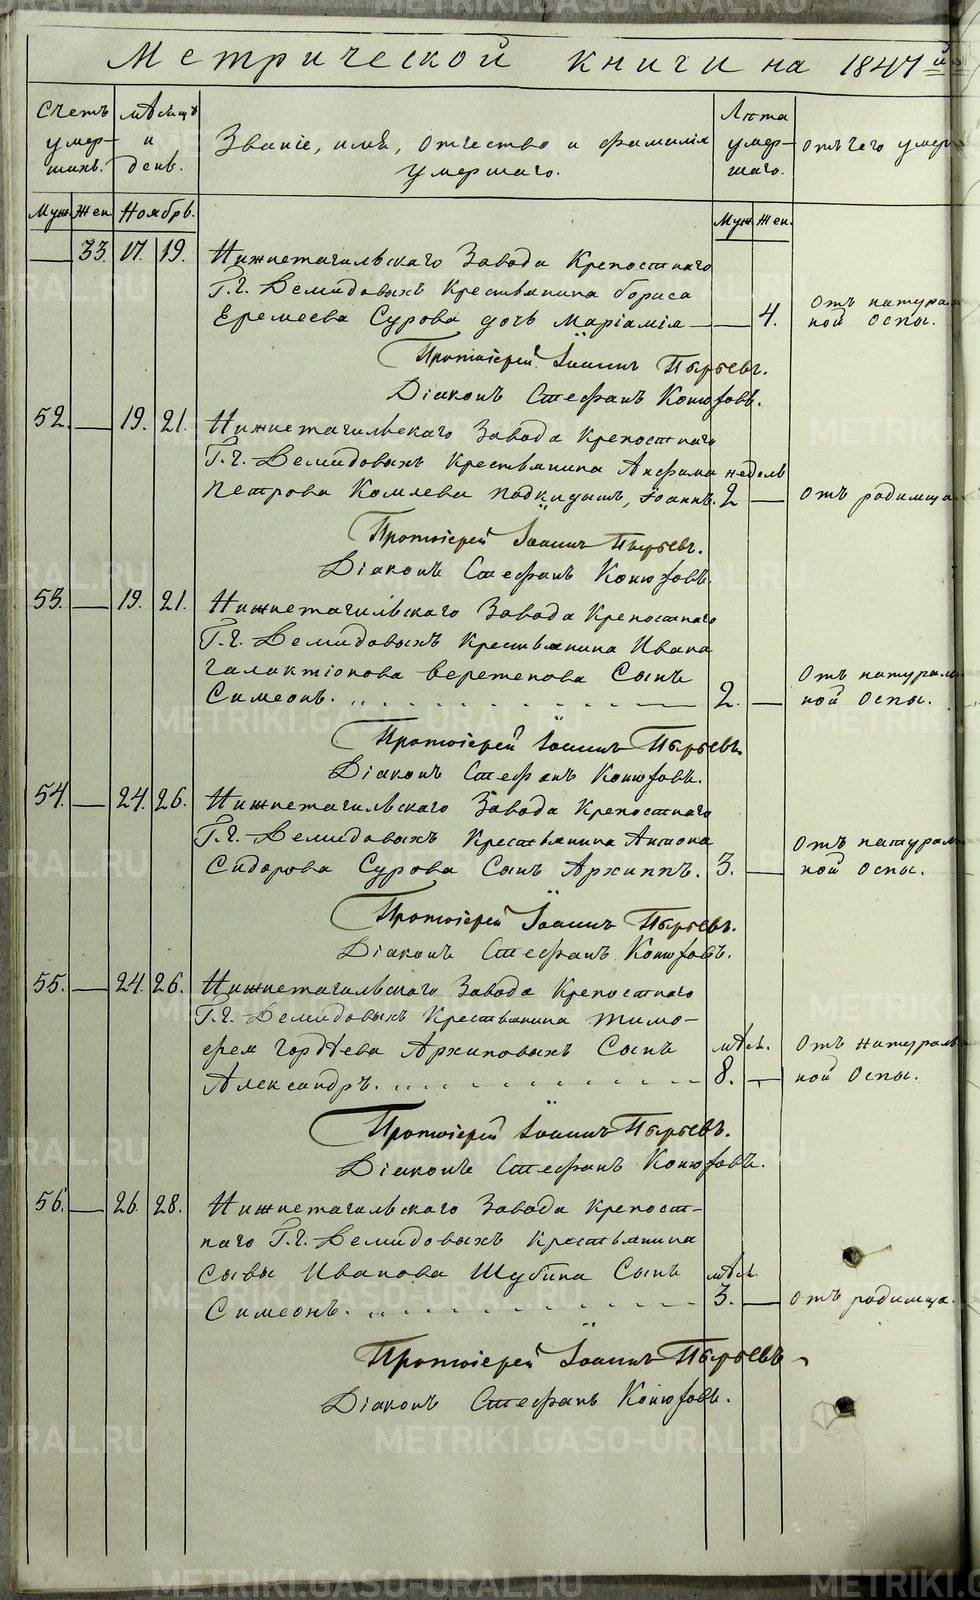 Метрической книги на 1847й
Счетъ умер- шихъ.
мѣсяцъ и день.
Званіе, имя, отчество и фамилія умершаго.
Лѣта умер- шаго.
Отъ чего умер
Муж. Жен. Ноябрь. Муж. Жен.
33. 17. 19. Нижнетагильскаго Завода Крепостнаго
Г.г. Демидовыхъ Крестьянина бориса
Еремеева Сурова дочь Маріамія 4. Отъ натураль
ной Оспы.
Протоіерей Іоаннъ Пырьевъ.
Діаконъ Стефанъ Конюховъ.
52. 19. 21. Нижнетагильскаго Завода Крепостнаго
Г.г. Демидовыхъ Крестьянина Анфима недѣль
Петрова Комлева подкидышъ, Іоаннъ. 2 Отъ родимца.
Протоіерей Іоаннъ Пырьевъ.
Діаконъ Стефанъ Конюховъ.
53. 19. 21. Нижнетагильскаго Завода Крепостнаго
Г.г. Демидовыхъ Крестьянина Ивана
Галактіонова Веретенова Сынъ
Симеонъ. 2. Отъ натураль
ной Оспы.
Протоіерей Іоаннъ Пырьевъ.
Діаконъ Стефанъ Конюховъ.
54. 24. 26. Нижнетагильскаго Завода Крепостнаго
Г.г. Демидовыхъ Крестьянина Антона
Сидорова Сурова Сынъ Архиппъ. 3. Отъ натураль
ной Оспы.
Протоіерей Іоаннъ Пырьевъ.
Діаконъ Стефанъ Конюховъ.
55. 24. 26. Нижнетагильскаго Завода Крепостнаго
Г.г. Демидовыхъ Крестьянина Тимо-
фея Гордѣева Архиповыхъ Сынъ мѣся. Отъ натураль
Александръ. 8. ной Оспы.
Протоіерей Іоаннъ Пырьевъ.
Діаконъ Стефанъ Конюховъ.
56. 26. 28. Нижнетагильскаго Завода Крепост-
наго Г.г. Демидовыхъ Крестьянина
Савы Иванова Шубина Сынъ мѣся.
Симеонъ. 3. Отъ родимца.
Протоіерей Іоаннъ Пырьевъ
Діаконъ Стефанъ Конюховъ.
METRIKI.GASO-URAL.RU